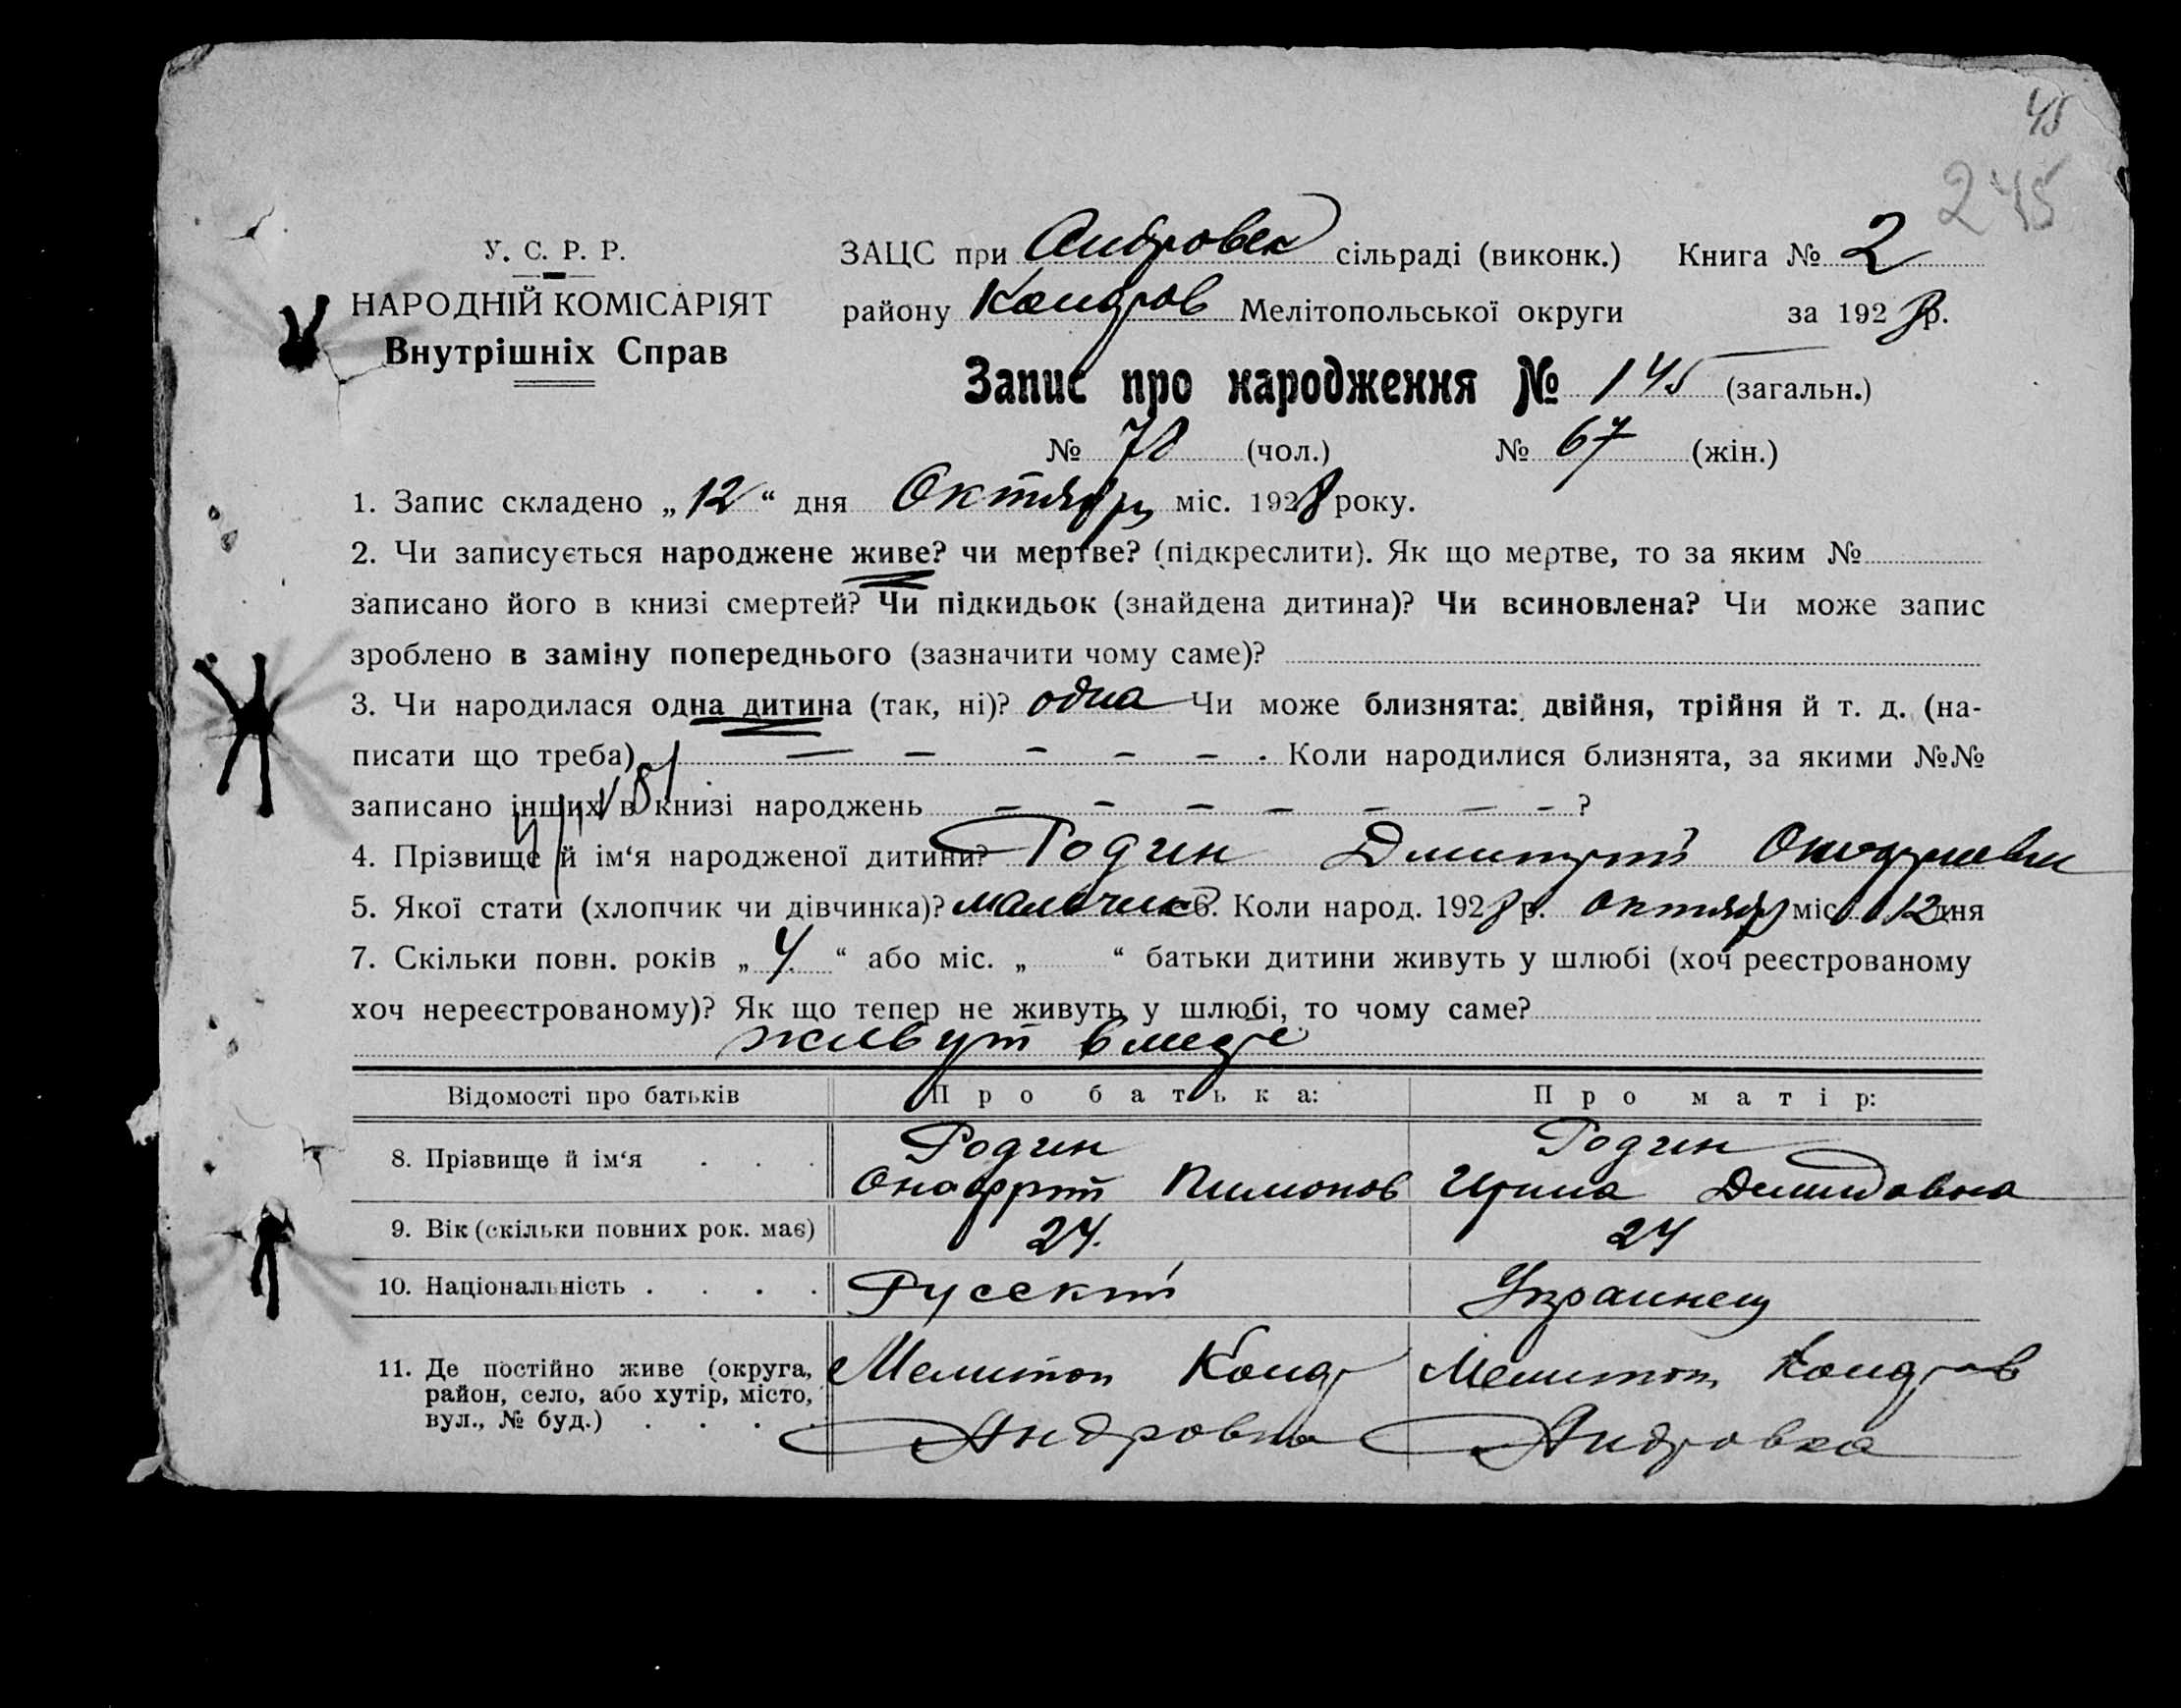 45
245
У. С. Р. Р.
НАРОДНІЙ КОМІСАРІЯТ
Внутрішніх Справ
ЗАЦС при Андровск сільраді (виконк.) Книга № 2
району Кондров Мелітопольської округи за 1928 р.
Запис про народження № 145 (загальн.)
№ 78 (чол.) № 67 (жін.)
1. Запис складено „12“ дня Октября міс. 1928 року.
2. Чи записується народжене живе? чи мертве? (підкреслити). Як що мертве, то за яким №
записано його в книзі смертей? Чи підкидьок (знайдена дитина)? Чи всиновлена? Чи може запис
зроблено в заміну попереднього (зазначити чому саме)?
3. Чи народилася одна дитина (так, ні)? одна Чи може близнята: двійня, трійня й т. д. (на-
писати що треба) — — — — — . Коли народилися близнята, за якими №№
записано інших в книзі народжень — — — — — — — ?
4. Прізвище й ім‘я народженої дитини? Годин Дмитрий
5. Якої стати (хлопчик чи дівчинка)? мальчик 6. Коли народ. 1928 р. октября міс. 12 дня
7. Скільки повн. років „4“ або міс. „ “ батьки дитини живуть у шлюбі (хоч реєстрованому
хоч нереєстрованому)? Як що тепер не живуть у шлюбі, то чому саме?
живут вместе
Відомості про батьків Про батька: Про матір:
8. Прізвище й ім‘я . . . Годин Годин
Онофрий Пимонов Ирина Демидовна
9. Вік (скільки повних рок. має) 24. 24
10. Національність . . . . Русский Украинец
11. Де постійно живе (округа, Мелитоп Конд Мелитоп Кондров
район, село, або хутір, місто,
вул., № буд.) . . . . Андровка Андровка